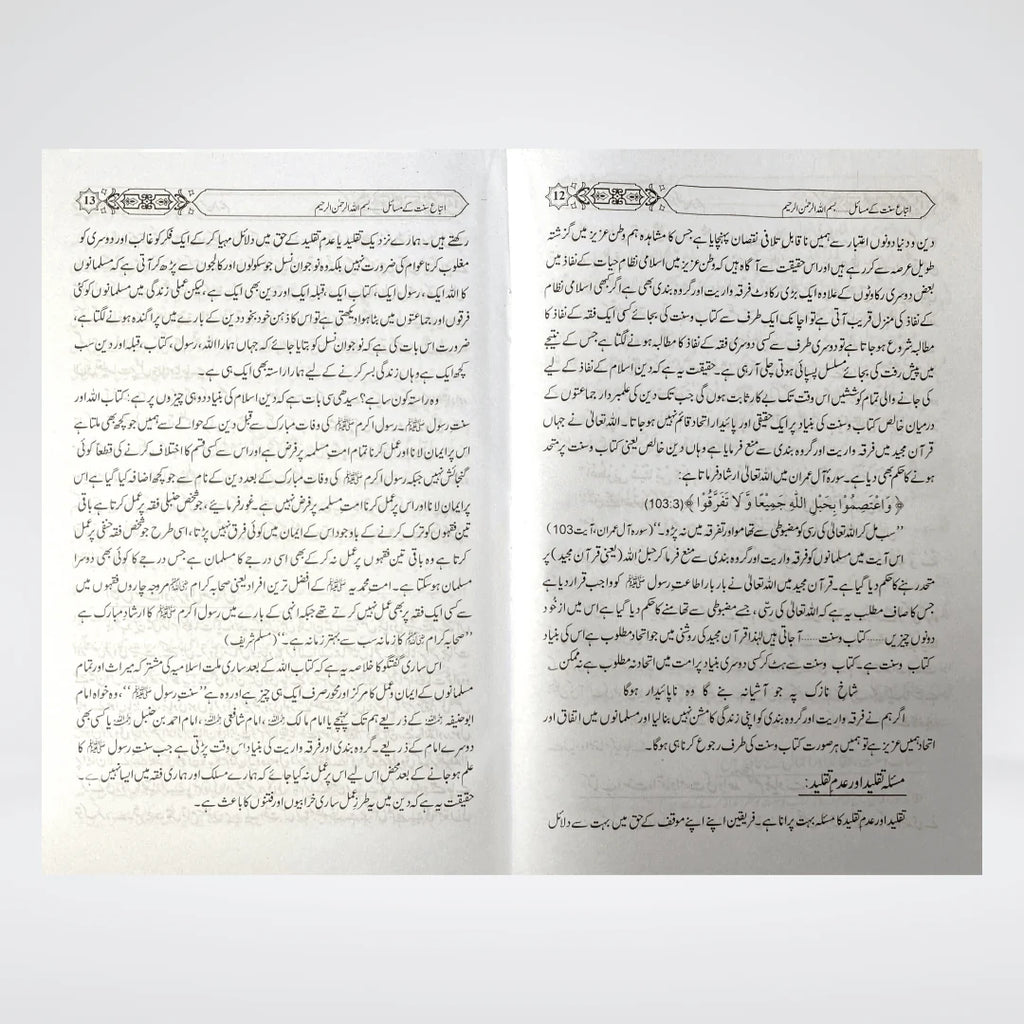 اتباع سنت کے مسائل.....بسم اللہ الرحمٰن الرحیم
12
دین و دنیا دونوں اعتبار سے ہمیں نا قابل تلافی نقصان پہنچایا ہے جس کا مشاہدہ ہم وطن عزیز میں گزشتہ
طویل عرصہ سے کر رہے ہیں اور اس حقیقت سے آگاہ ہیں کہ وطن عزیز میں اسلامی نظام حیات کے نفاذ میں
بعض دوسری رکاوٹوں کے علاوہ ایک بڑی رکاوٹ فرقہ واریت اور گروہ بندی بھی ہے اگر کبھی اسلامی نظام
کے نفاذ کی منزل قریب آتی ہے تو اچانک ایک طرف سے کتاب و سنت کی بجائے کسی ایک فقہ کے نفاذ کا
مطالبہ شروع ہو جاتا ہے تو دوسری طرف سے کسی دوسری فقہ کے نفاذ کا مطالبہ ہونے لگتا ہے جس کے نتیجے
میں پیش رفت کی بجائے مسلسل پسپائی ہوتی چلی آ رہی ہے۔ حقیقت یہ ہے کہ دین اسلام کے نفاذ کے لیے
کی جانے والی تمام کوششیں اس وقت تک بے کار ثابت ہوں گی جب تک دین کی علمبردار جماعتوں کے
درمیان خالص کتاب و سنت کی بنیاد پر ایک حقیقی اور پائیدار اتحاد قائم نہیں ہو جاتا۔ اللہ تعالیٰ نے جہاں
قرآن مجید میں فرقہ واریت اور گروہ بندی سے منع فرمایا ہے وہاں دین خالص یعنی کتاب و سنت پر متحد
ہونے کا حکم بھی دیا ہے۔ سورہ آل عمران میں اللہ تعالیٰ ارشاد فرماتا ہے:
﴿ وَاعْتَصِمُوْا بِحَبْلِ اللّٰهِ جَمِيْعًا وَّ لَا تَفَرَّقُوْا ﴾(103:3)
”سب مل کر اللہ تعالیٰ کی رسی کو مضبوطی سے تھامو اور تفرقہ میں نہ پڑو۔“ (سورہ آل عمران، آیت 103)
اس آیت میں مسلمانوں کو فرقہ واریت اور گروہ بندی سے منع فرما کر حبل اللہ (یعنی قرآن مجید) پر
متحد رہنے کا حکم دیا گیا ہے۔ قرآن مجید میں اللہ تعالیٰ نے بار بار اطاعت رسول ﷺ کو واجب قرار دیا ہے
جس کا صاف مطلب یہ ہے کہ اللہ تعالیٰ کی رسّی، جسے مضبوطی سے تھامنے کا حکم دیا گیا ہے اس میں از خُود
دونوں چیزیں......کتاب وسنت......آ جاتی ہیں لہٰذا قرآن مجید کی روشنی میں جو اتحاد مطلوب ہے اس کی بنیاد
کتاب وسنت ہے۔ کتاب وسنت سے ہٹ کر کسی دوسری بنیاد پر امت میں اتحاد نہ مطلوب ہے نہ ممکن
شاخ نازک پہ جو آشیانہ بنے گا وہ ناپائیدار ہوگا
اگر ہم نے فرقہ واریت اور گروہ بندی کو اپنی زندگی کا مشن نہیں بنا لیا اور مسلمانوں میں اتفاق اور
اتحاد ہمیں عزیز ہے تو ہمیں ہر صورت کتاب وسنت کی طرف رجوع کرنا ہی ہوگا۔
مسئلہ تقلید اور عدم تقلید:
تقلید اور عدم تقلید کا مسئلہ بہت پرانا ہے۔ فریقین اپنے اپنے موقف کے حق میں بہت سے دلائل
اتباع سنت کے مسائل.....بسم اللہ الرحمٰن الرحیم
13
رکھتے ہیں۔ ہمارے نزدیک تقلید یا عدم تقلید کے حق میں دلائل مہیا کر کے ایک فکر کو غالب اور دوسری کو
مغلوب کرنا عوام کی ضرورت نہیں بلکہ وہ نوجوان نسل جو سکولوں اور کالجوں سے پڑھ کر آتی ہے کہ مسلمانوں
کا اللہ ایک، رسول ایک، کتاب ایک، قبلہ ایک اور دین بھی ایک ہے، لیکن عملی زندگی میں مسلمانوں کو کئی
فرقوں اور جماعتوں میں بٹا ہوا دیکھتی ہے تو اس کا ذہن خود بخود دین کے بارے میں پراگندہ ہونے لگتا ہے،
ضرورت اس بات کی ہے کہ نوجوان نسل کو بتایا جائے کہ جہاں ہمارا اللہ، رسول، کتاب، قبلہ اور دین سب
کچھ ایک ہے وہاں زندگی بسر کرنے کے لیے ہمارا راستہ بھی ایک ہی ہے۔
وہ راستہ کون سا ہے؟ سیدھی سی بات ہے کہ دین اسلام کی بنیاد دو ہی چیزوں پر ہے: کتاب اللہ اور
سنت رسول ﷺ۔ رسول اکرم ﷺ کی وفات مبارک سے قبل دین کے حوالے سے ہمیں جو کچھ بھی ملتا ہے
اس پر ایمان لانا اور عمل کرنا تمام امت مسلمہ پر فرض ہے اور اس سے کسی قسم کا اختلاف کرنے کی قطعاً کوئی
گنجائش نہیں جبکہ رسول اکرم ﷺ کی وفات مبارک کے بعد دین کے نام سے جو کچھ اضافہ کیا گیا ہے اس
پر ایمان لانا اور اس پر عمل کرنا امت مسلمہ پر فرض نہیں ہے۔ غور فرمائیے، جو شخص حنبلی فقہ پر عمل کرتا ہے باقی
تین فقہوں کو ترک کرنے کے باوجود اس کے ایمان میں کوئی فرق نہیں پڑتا، اسی طرح جو شخص فقہ حنفی پر عمل
کرتا ہے وہ باقی تین فقہوں پر عمل نہ کر کے بھی اسی درجے کا مسلمان ہے جس درجے کا کوئی بھی دوسرا
مسلمان ہو سکتا ہے۔ امت محمدیہ ﷺ کے افضل ترین افراد یعنی صحابہ کرام رضی اللہ عنہم مروجہ چاروں فقہوں میں
سے کسی ایک فقہ پر بھی عمل نہیں کرتے تھے جبکہ انہی کے بارے میں رسول اکرم ﷺ کا ارشاد مبارک ہے
”صحابہ کرام رضی اللہ عنہم کا زمانہ سب سے بہتر زمانہ ہے۔“ (مسلم شریف)
اس ساری گفتگو کا خلاصہ یہ ہے کہ کتاب اللہ کے بعد ساری ملت اسلامیہ کی مشترکہ میراث اور تمام
مسلمانوں کے ایمان و عمل کا مرکز اور محور صرف ایک ہی چیز ہے اور وہ ہے ”سنت رسول ﷺ“، وہ خواہ امام
ابو حنیفہ رحمہ اللہ کے ذریعے ہم تک پہنچے یا امام مالک رحمہ اللہ، امام شافعی رحمہ اللہ، امام احمد بن حنبل رحمہ اللہ یا کسی بھی
دوسرے امام کے ذریعے۔ گروہ بندی اور فرقہ واریت کی بنیاد اس وقت پڑتی ہے جب سنت رسول ﷺ کا
علم ہو جانے کے بعد محض اس لیے اس پر عمل نہ کیا جائے کہ ہمارے مسلک اور ہماری فقہ میں ایسا نہیں ہے۔
حقیقت یہ ہے کہ دین میں یہ طرز عمل ساری خرابیوں اور فتنوں کا باعث ہے۔